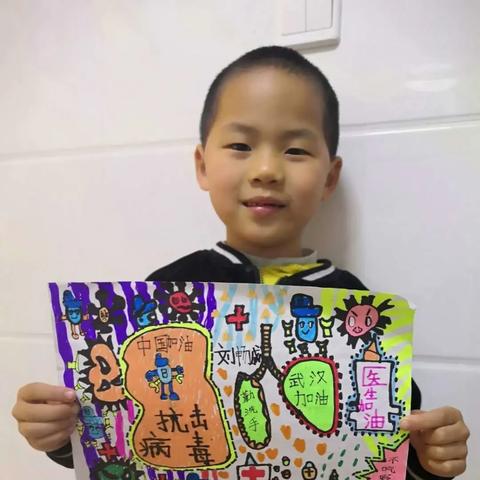 中国加油
抗击
病毒
勤洗手
武汉
加油
医生加油
不吃野